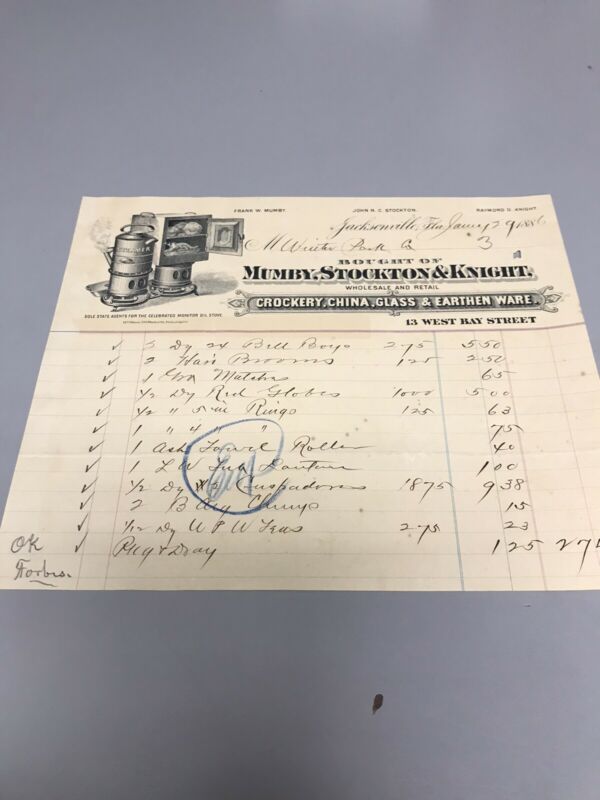 FRANK W. MUMBY. JOHN N. C. STOCKTON. RAYMOND D. KNIGHT.
Jacksonville, Fla Jany 29 1886
M Winter Park Co 3
BOUGHT OF
MUMBY, STOCKTON & KNIGHT,
WHOLESALE AND RETAIL
CROCKERY, CHINA, GLASS & EARTHEN WARE.
13 WEST BAY STREET
SOLE STATE AGENTS FOR THE CELEBRATED MONITOR OIL STOVE.
2 Dy 24 Bell Boys 275 5 50
2 Hair Brooms 125 2 50
1 Gro Matches 65
1/2 Dy Red Globes 1000 5 00
1/2 " 5 in Rings 125 63
1 " 4 " " 75
1 Ash Towel Roller 40
1 Lantern 1 00
1/2 Dy Cuspadores 1875 9 38
2 B 15
1/12 Dy W P W Teas 275 23
Pkg & Dray 1 25 271
OK
Forbes.